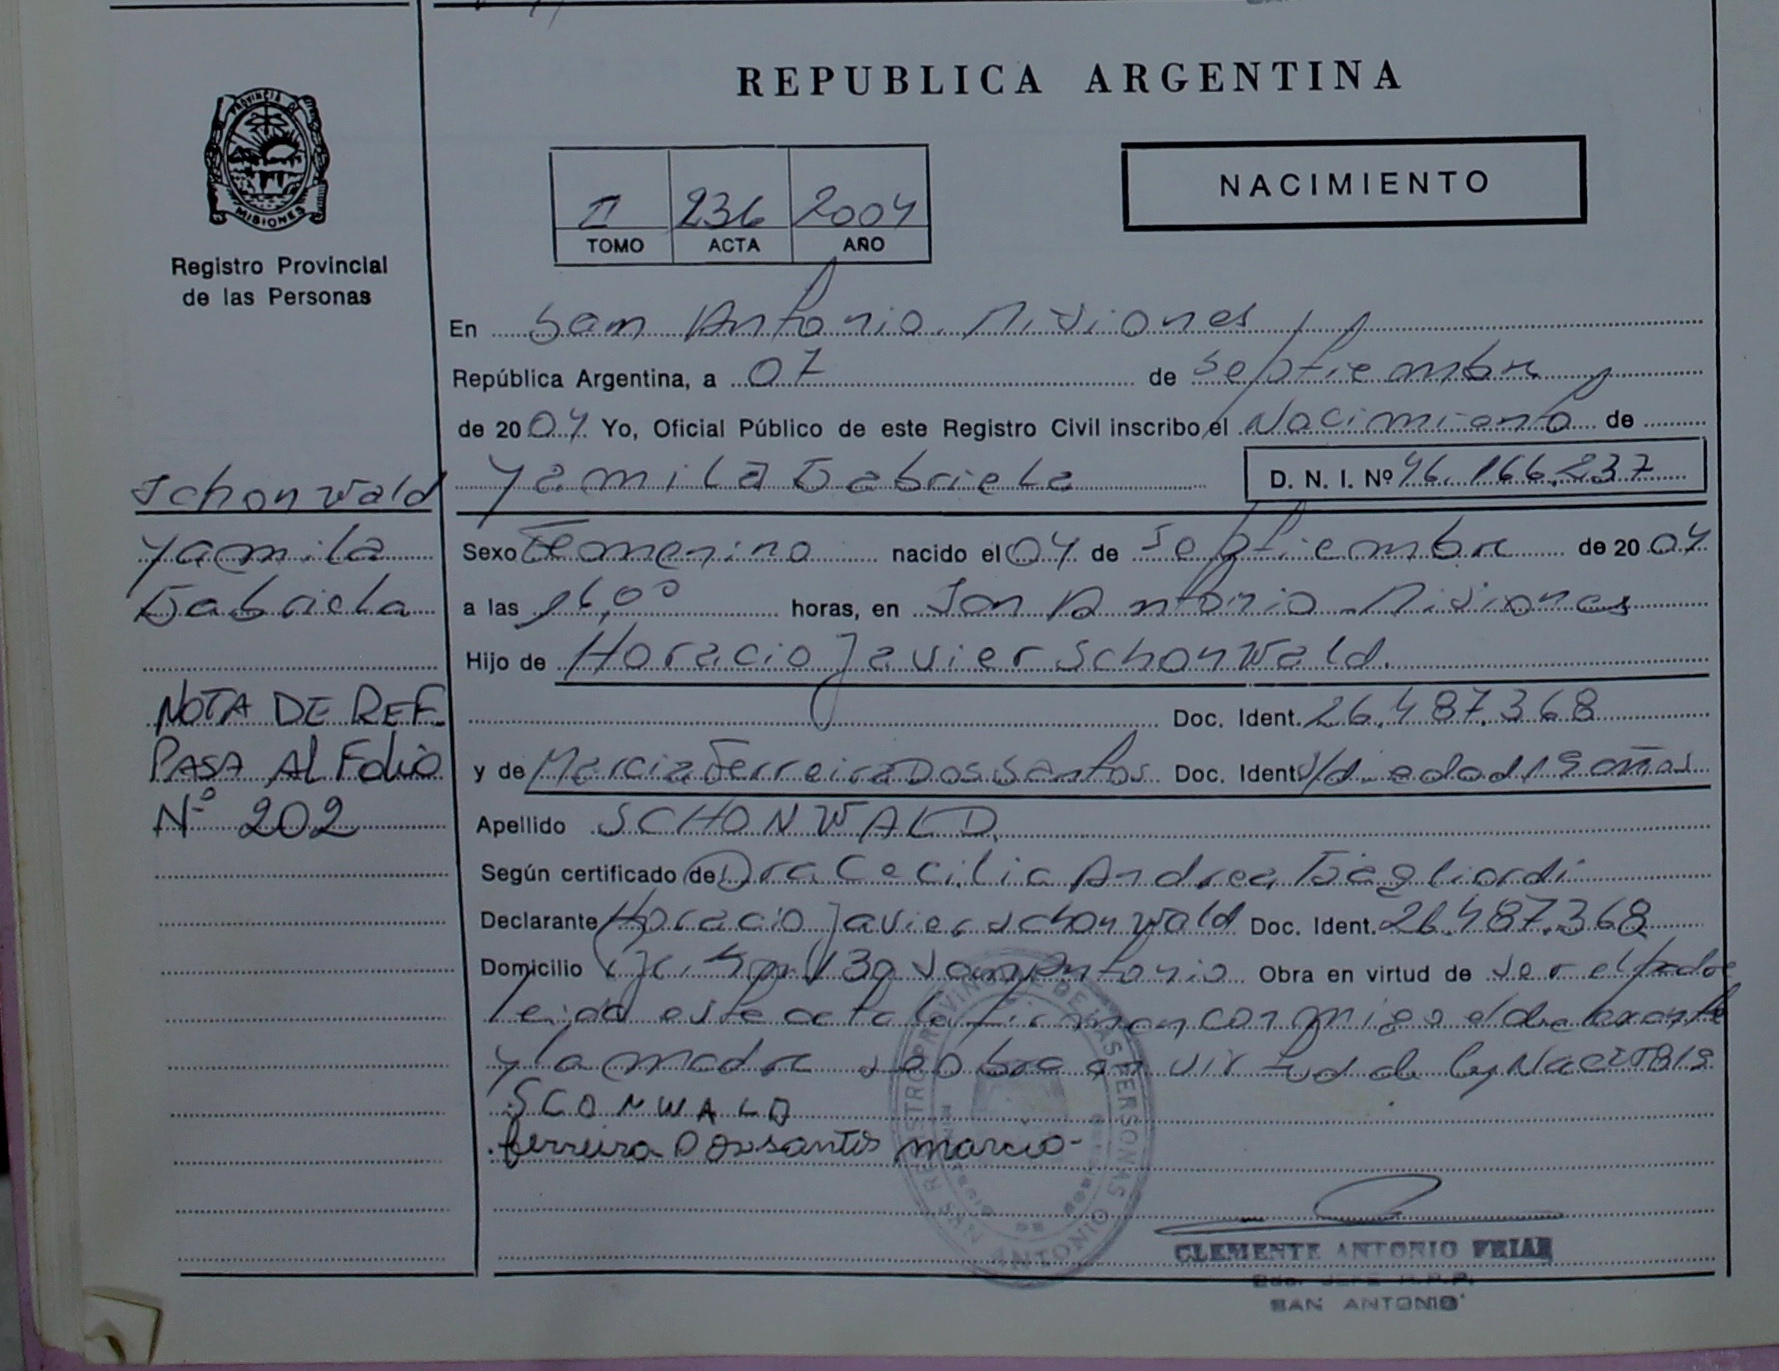 REPUBLICA ARGENTINA
PROVINCIA DE MISIONES
Registro Provincial
de las Personas
II 236 2004
TOMO ACTA AÑO
NACIMIENTO
En San Antonio Misiones
República Argentina, a 07 de septiembre
de 2004 Yo, Oficial Público de este Registro Civil inscribo el Nacimiento de
Yamila Gabriela D. N. I. Nº 46.166.237
Sexo Femenino nacido el 04 de Septiembre de 2004
a las 16,00 horas, en San Antonio Misiones
Hijo de Horacio Javier Schonwald
Doc. Ident. 26.487.368
y de Marcia Ferreira Dos Santos Doc. Ident s/d edad 19 años
Apellido SCHONWALD
Según certificado de Dra Cecilia Andrea Gagliardi
Declarante Horacio Javier Schonwald Doc. Ident. 26.487.368
Domicilio San Antonio Obra en virtud de ser el padre
leida este acta la firman conmigo el declarante
y la madre obra en virtud de ley Nac
SCONWALD
ferreira Dos santos marcia
Schonwald
Yamila
Gabriela
NOTA DE REF.
PASA Al Folio
Nº 202
REGISTRO PROVINCIAL DE LAS PERSONAS
SAN ANTONIO
CLEMENTE ANTONIO FRIAR
SAN ANTONIO